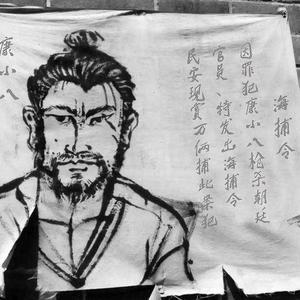 海捕令
因罪犯康小八枪杀朝廷
官员、特发出海捕令
民安现赏万俩捕此案犯
康小八